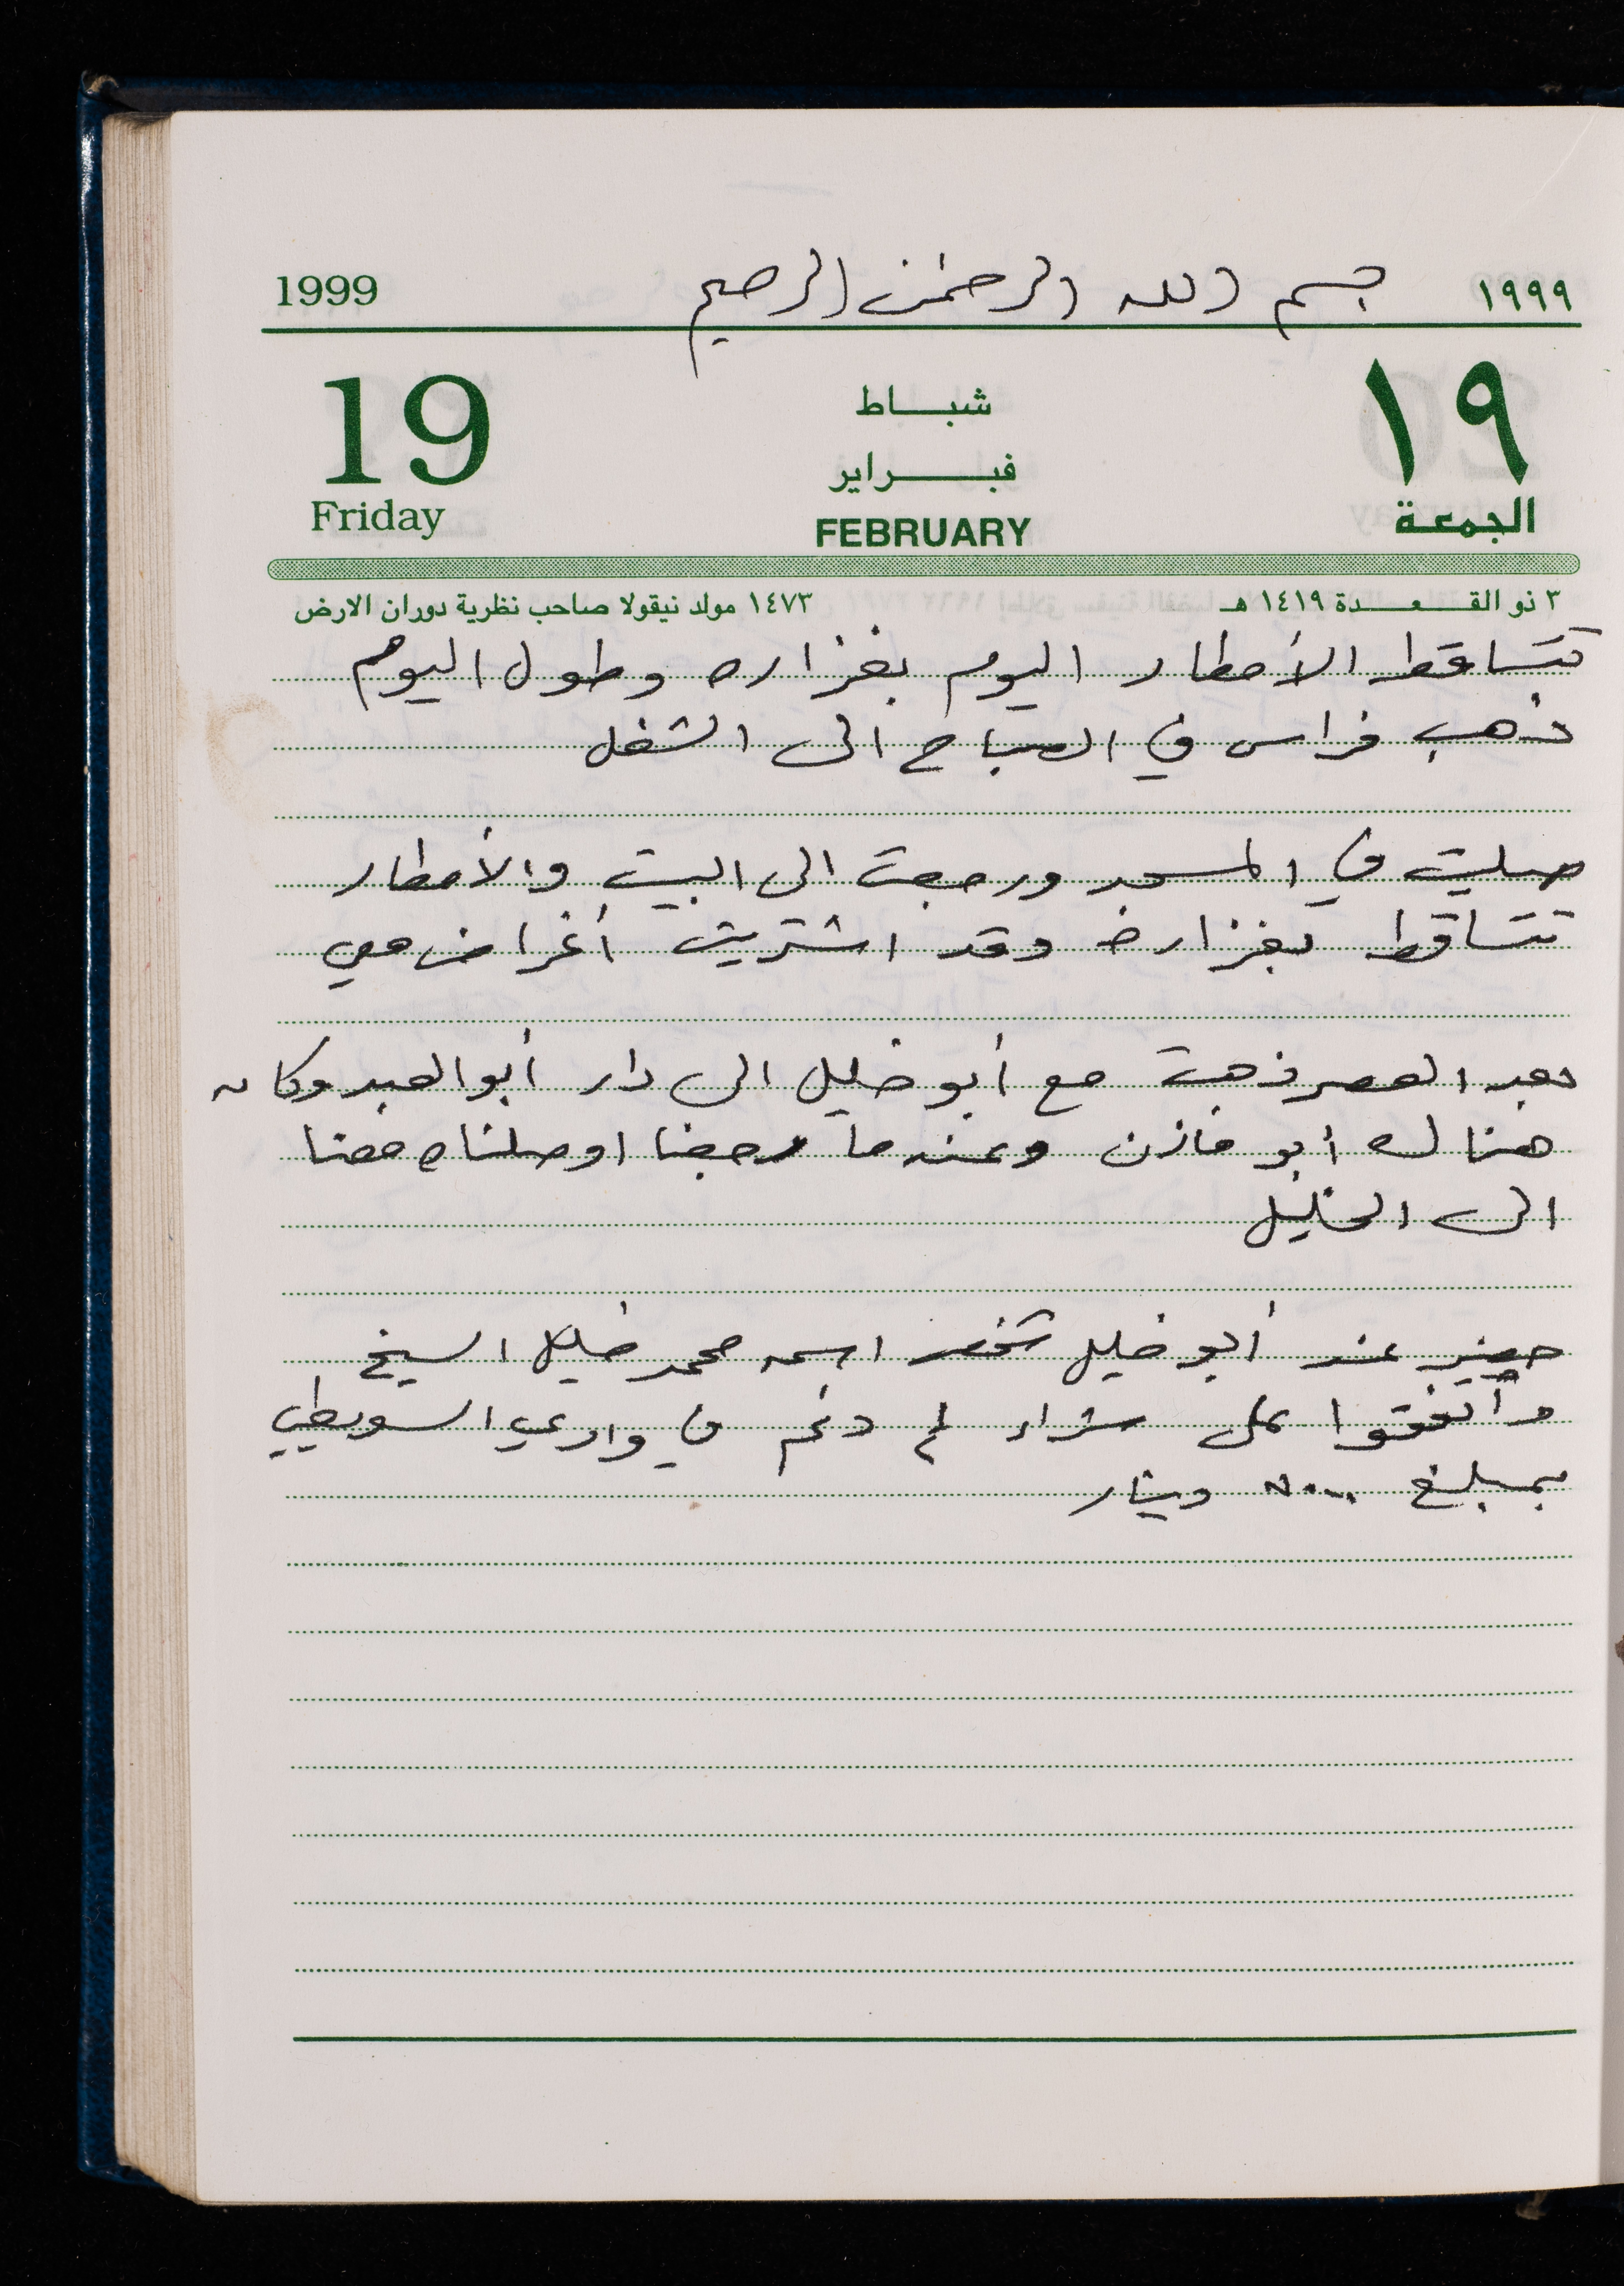 بسم الله الرحمن الرحيم
1999 ١٩٩٩
19 شباط ١٩
فبراير
Friday FEBRUARY الجمعة
٣ ذو القعدة ١٤١٩ هـ ١٤٧٣ مولد نيقولا صاحب نظرية دوران الارض
تتساقط الأمطار اليوم بغزاره وطول اليوم
ذهب فراس في الصباح الى الشغل
صليت في المسجد ورجعت الى البيت والأمطار
تتساقط بغزارة وقد اشتريت أغراض معي
بعد العصر ذهبت مع أبو خليل الى دار أبو العبد وكان
هناك أبو مازن وعندما رجعنا اوصلناه معنا
الى الخليل
حضر عند أبو خليل شخص اسمه محمد خليل الشيخ
وأتفقوا على شراء دنم في وادي السويطي
بمبلغ دينار